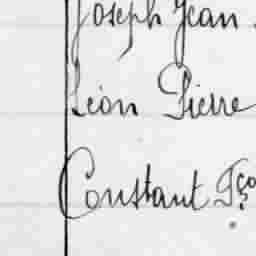 Joseph Jean
Léon Pierre
Constant Fço